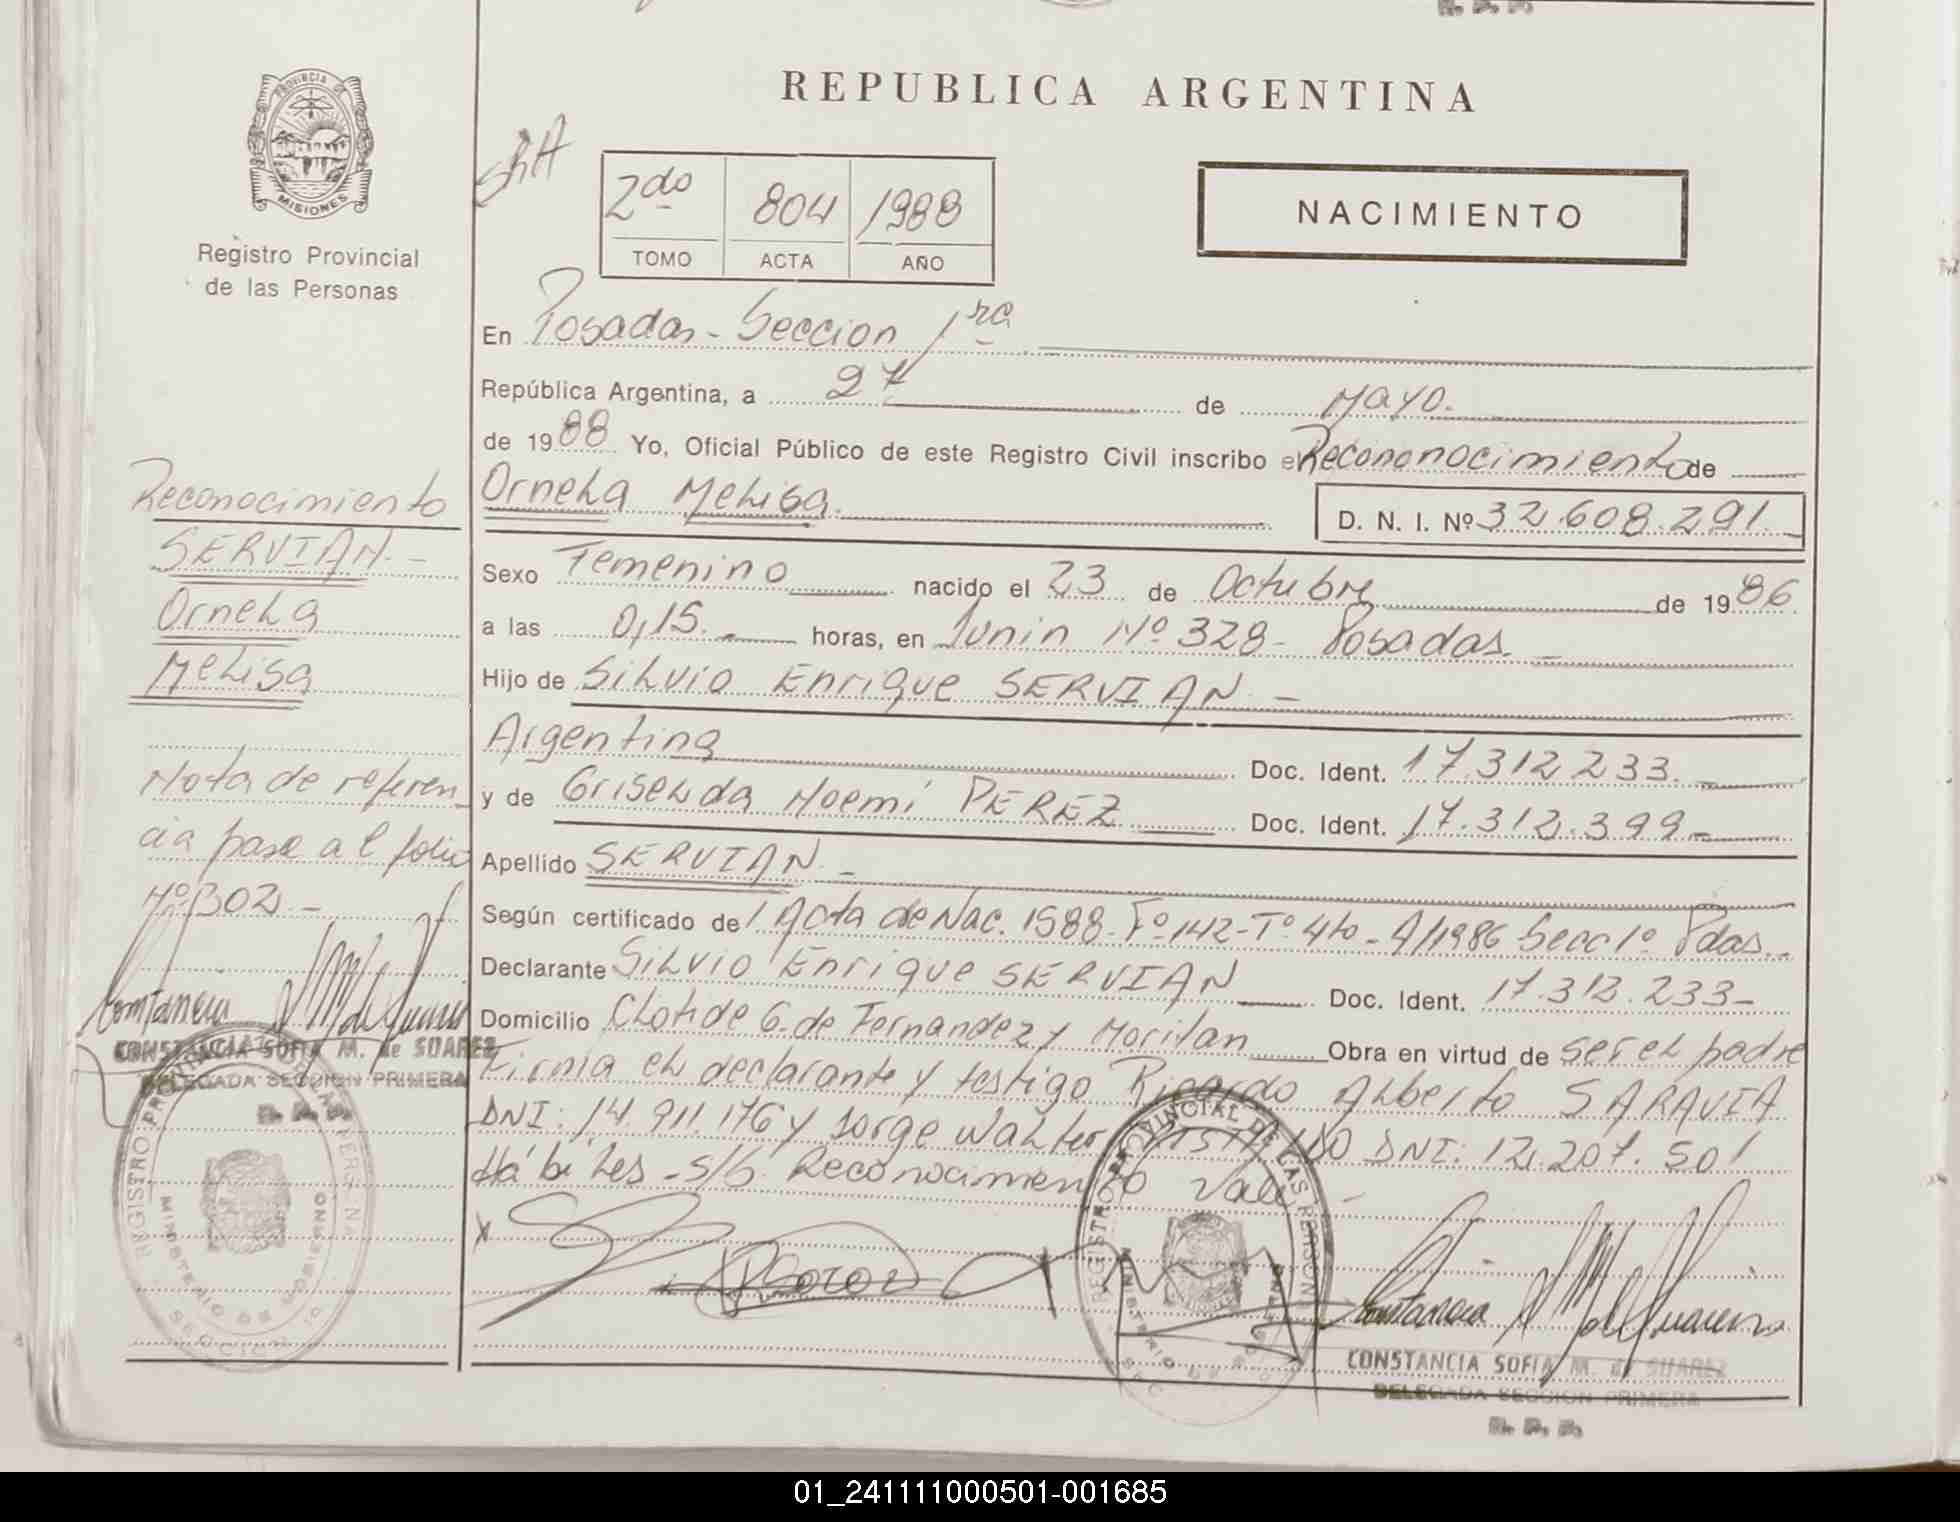 REPUBLICA ARGENTINA
PROVINCIA DE
MISIONES
Registro Provincial
de las Personas
2do 804 1988
TOMO ACTA AÑO
NACIMIENTO
En Posadas - Seccion 1ra
República Argentina, a 27 de Mayo.
de 1988 Yo, Oficial Público de este Registro Civil inscribo el Recononocimiento de
Ornella Melisa. D. N. I. Nº 32.608.291.
Sexo Femenino nacido el 23 de Octubre de 1986
a las 0,15. horas, en Junin Nº 328 - Posadas. -
Hijo de Silvio Enrique SERVIAN -
Argentina Doc. Ident. 17.312.233.
y de Griselda Noemí PEREZ Doc. Ident. 17.312.399 -
Apellido SERVIAN -
Según certificado de Acta de Nac. 1588 - Fº 142 - Tº 4to - A/1986 Secc 1º Pdas. -
Declarante Silvio Enrique SERVIAN Doc. Ident. 17.312.233 -
Domicilio Clotide G. de Fernandez y Moritan Obra en virtud de ser el padre
Firma el declarante y testigo Ricardo Alberto SARAVIA
DNI: 14.911.176 y Jorge Walter DNI: 12.207.501
Hábiles - s/b. Reconocimiento Vale -
Reconocimiento
SERVIAN. -
Ornella
Melisa
Nota de referen
cia pase al folio
Nº 302 -
CONSTANCIA SOFIA M. de SUAREZ
DELEGADA SECCION PRIMERA
R. P. P.
REGISTRO PROVINCIAL DE LAS PERSONAS
MINISTERIO DE GOBIERNO
CONSTANCIA SOFIA M. de SUAREZ
DELEGADA SECCION PRIMERA
R. P. P.
01_241111000501-001685